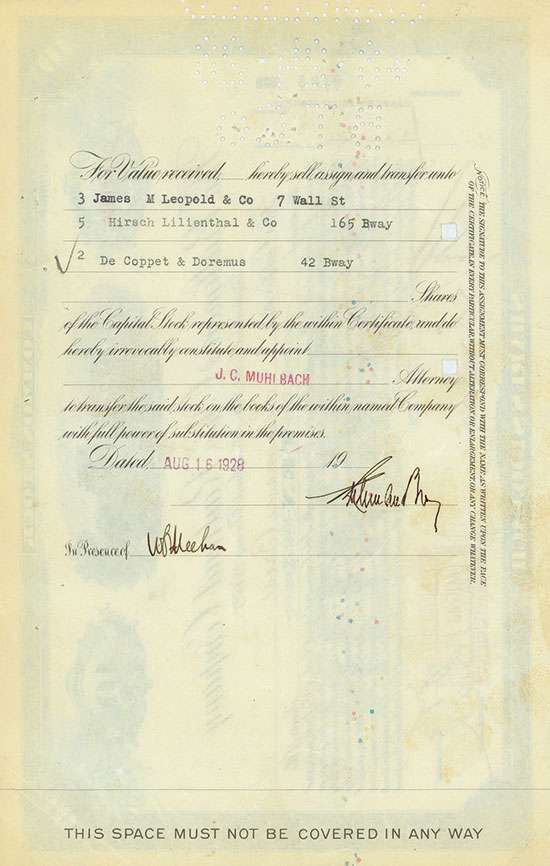 For Value received, hereby sell assign and transfer unto
3 James M Leopold & Co 7 Wall St
5 Hirsch Lilienthal & Co 165 Bway
2 De Coppet & Doremus 42 Bway
Shares
of the Capital Stock represented by the within Certificate, and do
hereby irrevocably constitute and appoint
J. C. MUHLBACH Attorney
to transfer the said stock on the books of the within named Company
with full power of substitution in the premises.
Dated, AUG 16 1928 19
In Presence of W B Meehan
Notice THE SIGNATURE TO THIS ASSIGNMENT MUST CORRESPOND WITH THE NAME AS WRITTEN UPON THE FACE
OF THE CERTIFICATE IN EVERY PARTICULAR WITHOUT ALTERATION OR ENLARGEMENT, OR ANY CHANGE WHATEVER.
THIS SPACE MUST NOT BE COVERED IN ANY WAY